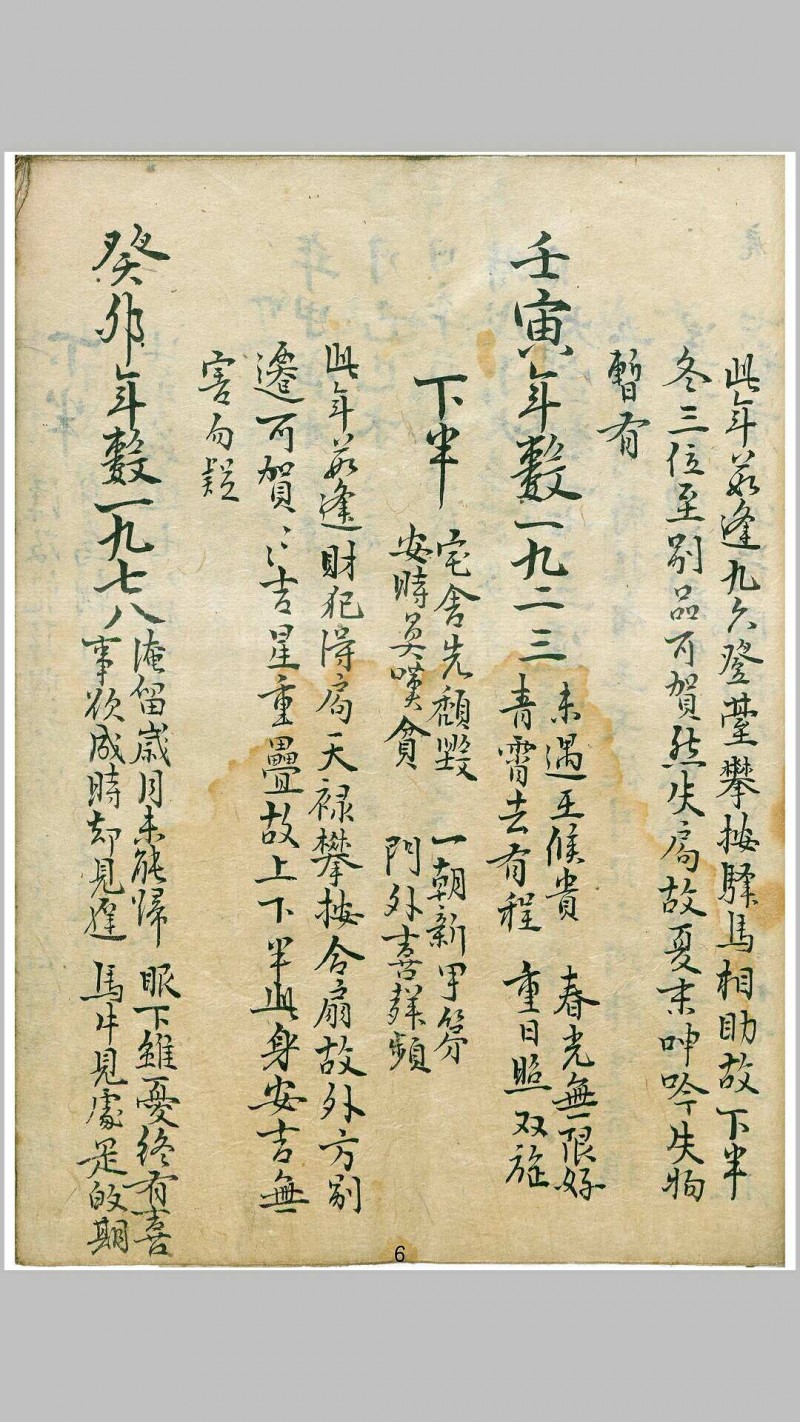 此年若逢九六登臺攀按驛馬相助故下半
冬三位至别品可賀然失扃故夏末呻吟失物
暫有
壬寅年數一九二三
未遇王候貴 春光無限好
青霄去有程 重日照双旌
下半
宅舍先頹毀 一朝新甲第
安時莫嘆貧 門外喜群頻
此年若逢財犯得扃天禄攀按合扇故外方别
遷可賀〻吉星重疊故上下半此身安吉無
害勿疑
癸卯年數一九七八
淹留歲月未能歸 眼下雖憂終有喜
事欲成時却見遲 馬牛見處是的期
6